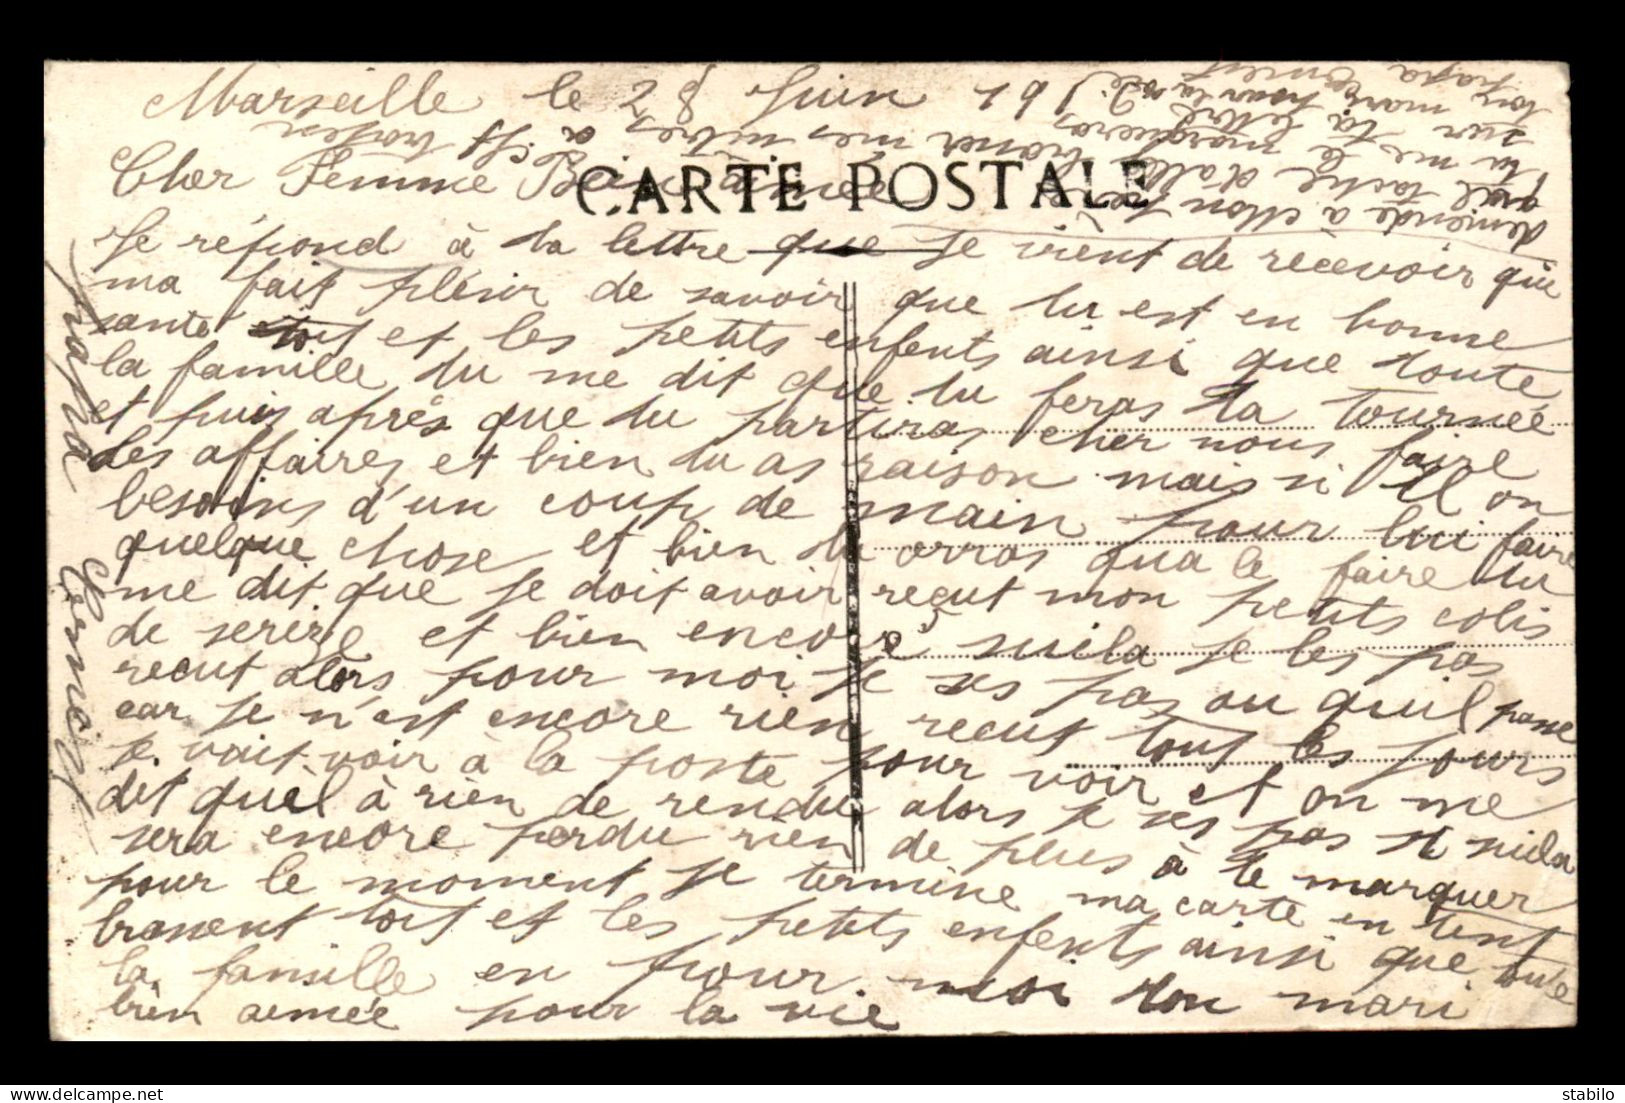 Marseille le 28 Juin 191
CARTE POSTALE
Cher Femme Bien aimée
Je répond à ta lettre que je vient de recevoir qui
ma fait plésir de savoir que tu est en bonne
sante toit et les petits enfents ainsi que toute
la famille tu me dit que tu feras ta tournée
et puis après que tu partiras cher nous faire
les affaires et bien tu as raison mais si Il on
besoins d'un coup de main pour lui faire
quelque chose et bien tu orras qua le faire tu
me dit que je doit avoir recut mon petits colis
de serize et bien encore suila je les pas
recut alors pour moi je ses pas ou quil passe
car je n'est encore rien recut tout les jours
je vait voir à la poste pour voir et on me
dit quèl à rien de rendu alors je ses pas si suila
sera encore perdu rien de plus à te marquer
pour le moment je termine ma carte en tent
brassent toit et les petits enfents ainsi que toute
la famille en pour moi ton mari
bien aimée pour la vie
papa
demende à Mon
quel tache d'alle
tu me le marqueras
sur ta lettre
ton mari pour la vie
papa